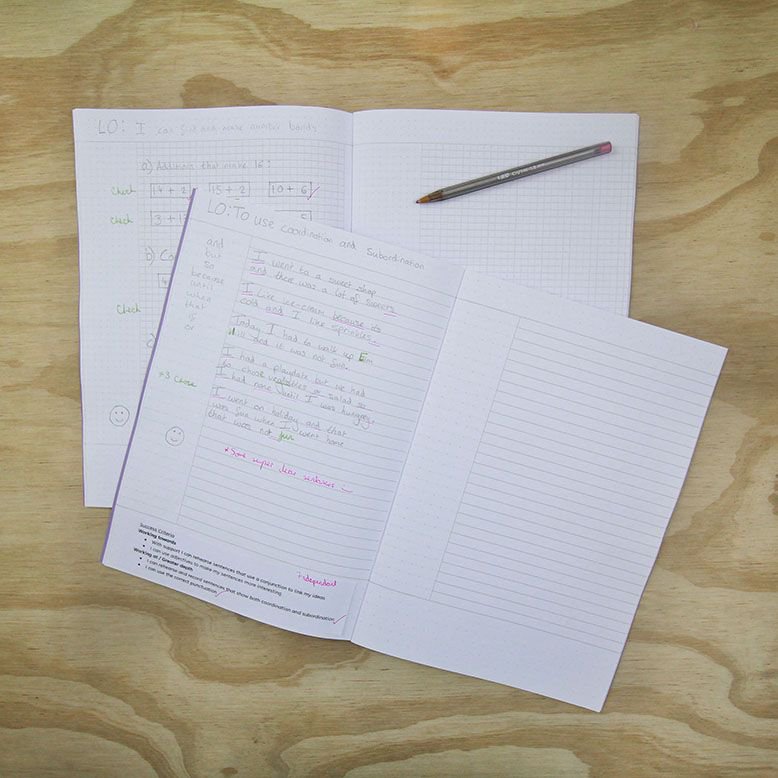 LO: I can find and make number bonds
a) Additions that make 16:
check 14 + 2 15 + 2 10 + 6
check 3 + 1
b)
check
LO: To use coordination and subordination
and
but
so
because
until
when
that
if
or
I went to a sweet shop
and there was a lot of
I like ice-cream because its
cold and I like sprinkles.
Today I had to walk up
hill and it was not fun.
I had a playdate but we had
to chose vegtables or salad so
I had none until I was hungrey.
I went on holiday and that
was fun when I went home
that was not fun
* Some super
Success Criteria
Working towards
• With support I can rehearse sentences that use a conjunction to link my ideas
• I can use adjectives to make my sentences more interesting
Working at / Greater depth
• I can rehearse and record sentences that show both coordination and subordination
• I can use the correct punctuation
independent